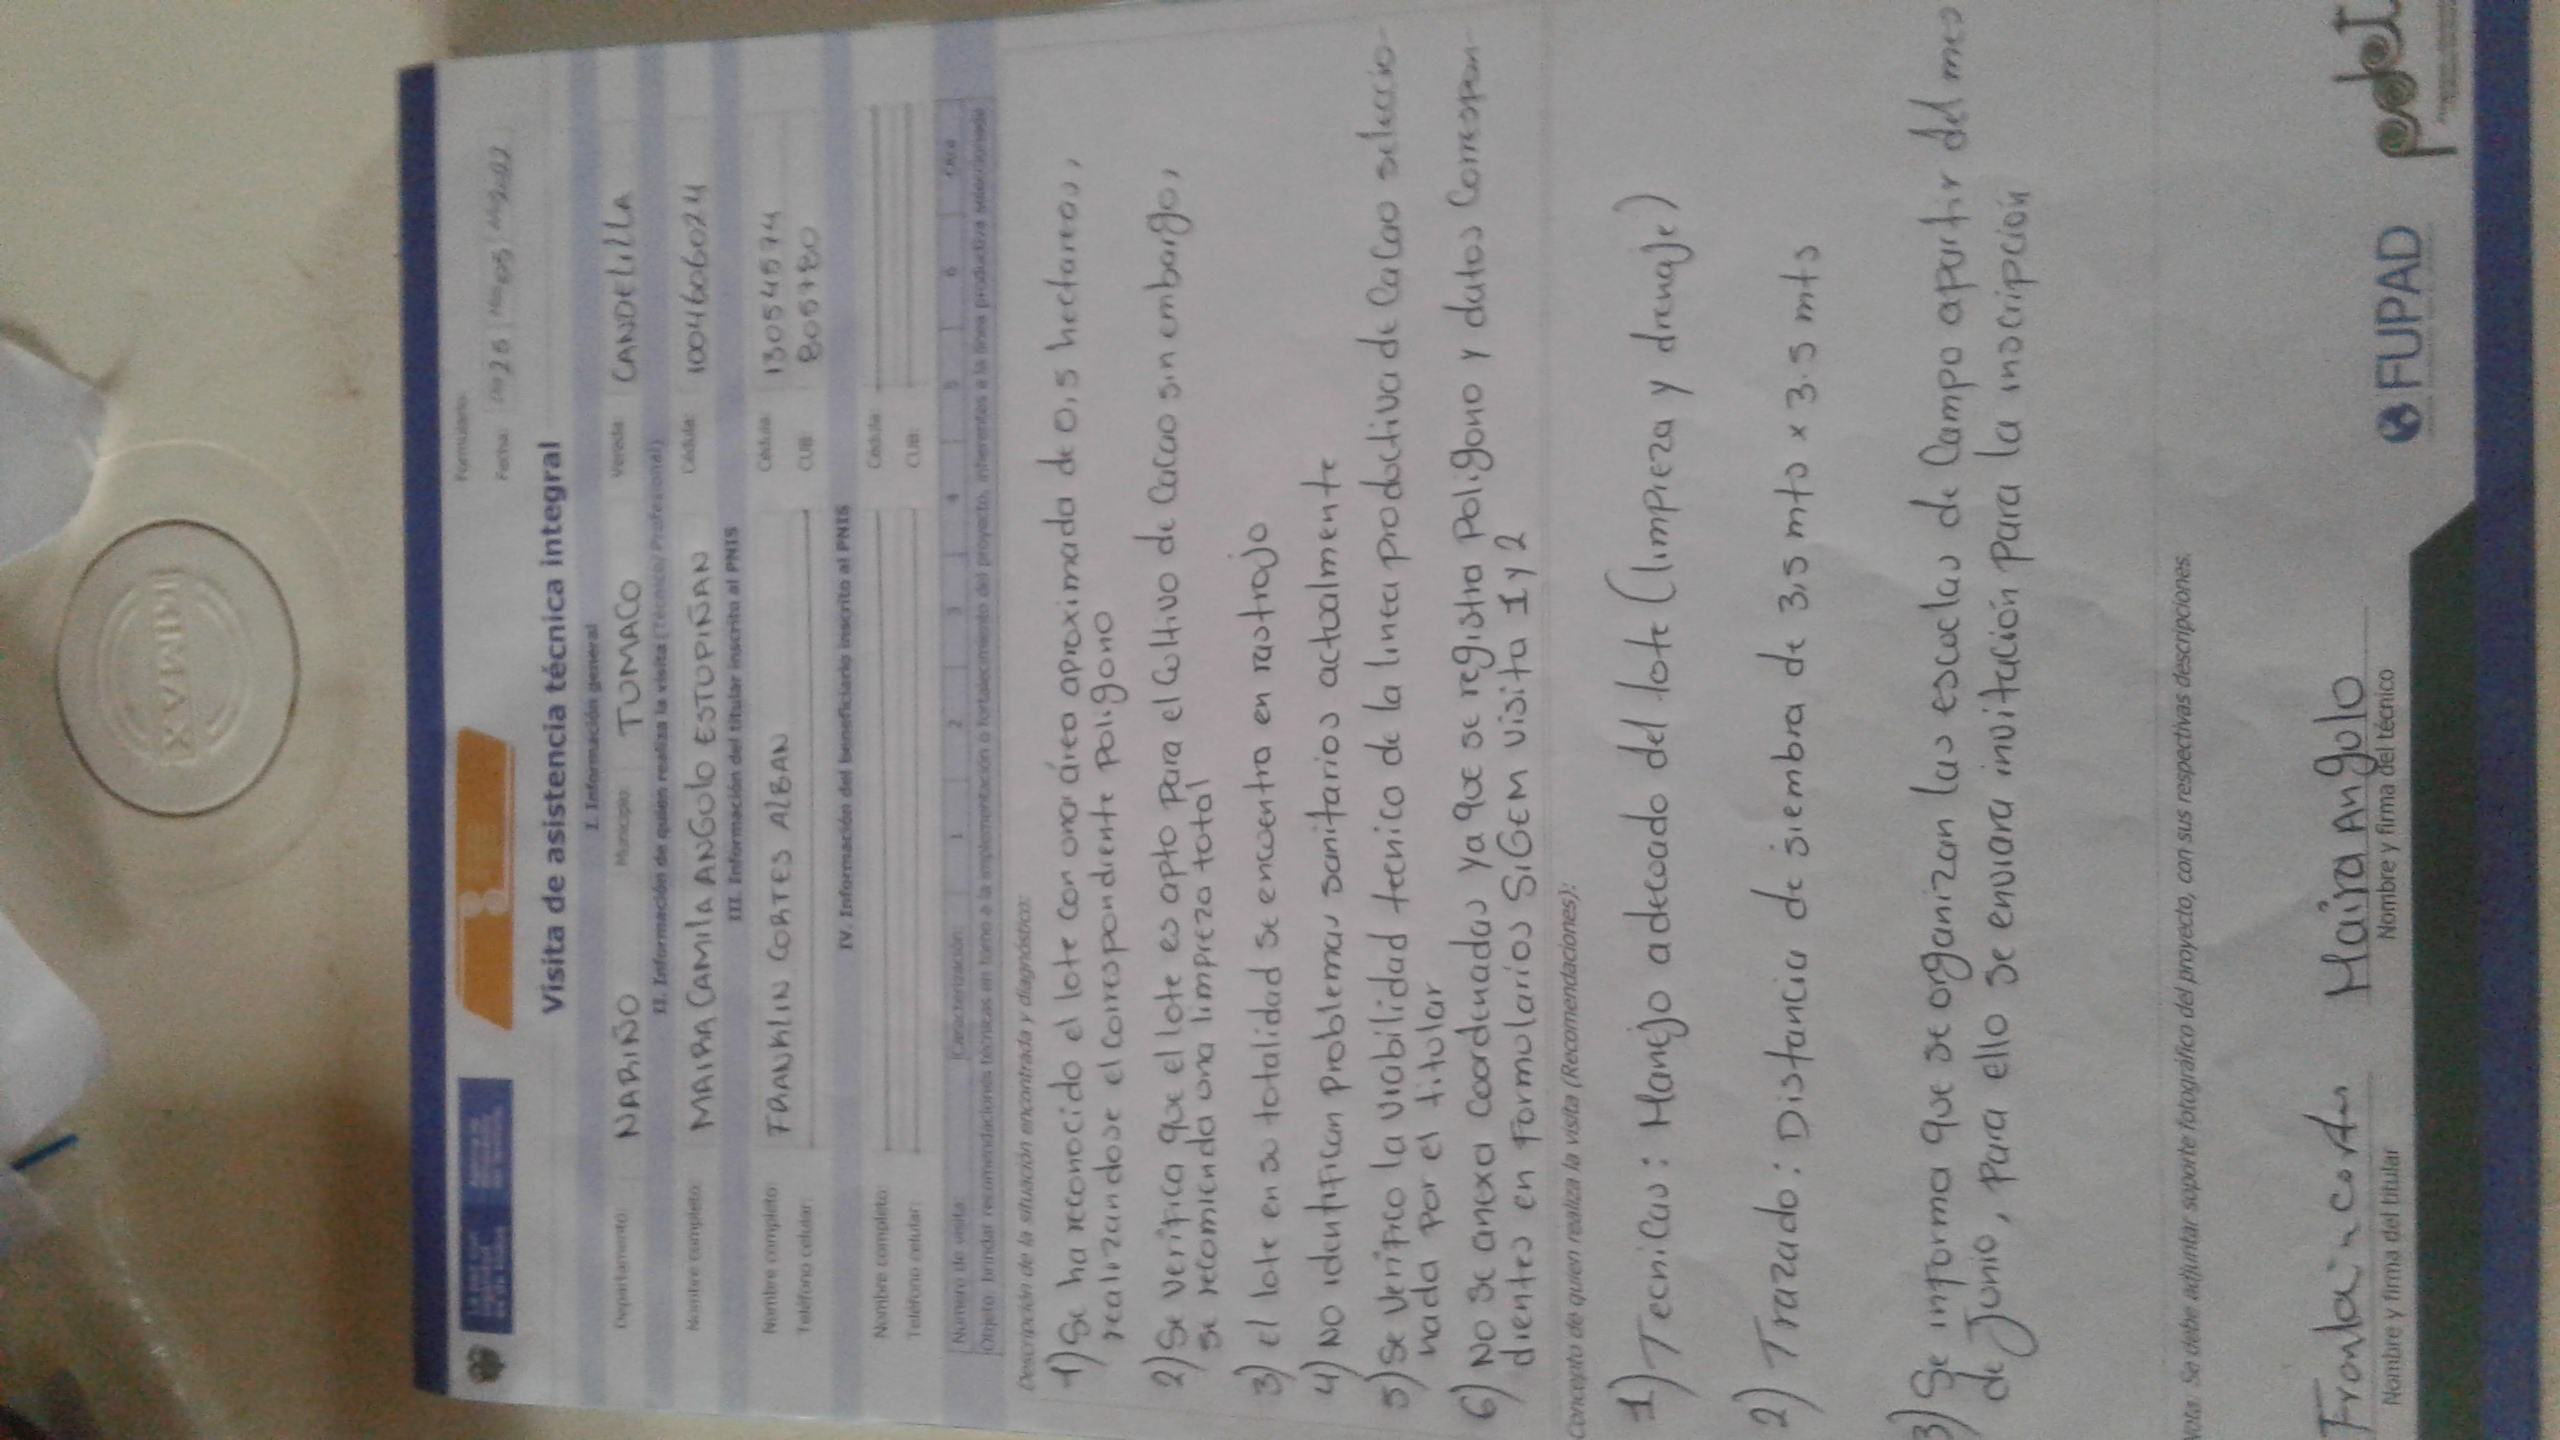 Formulario:
Fecha: 26 05 2022
Visita de asistencia técnica integral
I. Información general
Departamento: NARIÑO Municipio: TUMACO Vereda: CANDELILLA
II. Información de quien realiza la visita (Técnico/Profesional)
Nombre completo: MAIRA CAMILA ANGULO ESTUPIÑAN Cédula: 1004606024
III. Información del titular inscrito al PNIS
Nombre completo: FRANKLIN CORTES ALBAN Cédula: 130545574
Teléfono celular: CUB: 8005780
IV. Información del beneficiario inscrito al PNIS
Nombre completo: Cédula:
Teléfono celular: CUB:
Número de visita: Caracterización: 1 2 3 4 5 6 Otra
Objeto: brindar recomendaciones técnicas en torno a la implementación o fortalecimiento del proyecto, inherentes a la línea productiva seleccionada
Descripción de la situación encontrada y diagnóstico:
1) Se ha reconocido el lote con una área aproximada de 0,5 hectareas,
realizandose el correspondiente Poligono
2) Se verifica que el lote es apto para el cultivo de Cacao sin embargo,
se recomienda una limpieza total
3) el lote en su totalidad se encuentra en rastrojo
4) No identifican problemas sanitarios actualmente
5) Se verifico la viabilidad tecnico de la linea productiva de Cacao seleccio-
nada por el titular
6) No se anexa coordenadas ya que se registra poligono y datos correspon-
dientes en formularios SiGEM visita 1 y 2
Concepto de quien realiza la visita (Recomendaciones):
1) Tecnicas: Manejo adecuado del lote (limpieza y drenaje)
2) Trazado: Distancia de siembra de 3,5 mts x 3.5 mts
3) Se informa que se organizan las escuelas de Campo apartir del mes
de Junio, para ello se enviara invitación para la inscripción
Nota: Se debe adjuntar soporte fotográfico del proyecto, con sus respectivas descripciones.
cortes Maira Angulo
Nombre y firma del titular Nombre y firma del técnico
FUPAD pdet